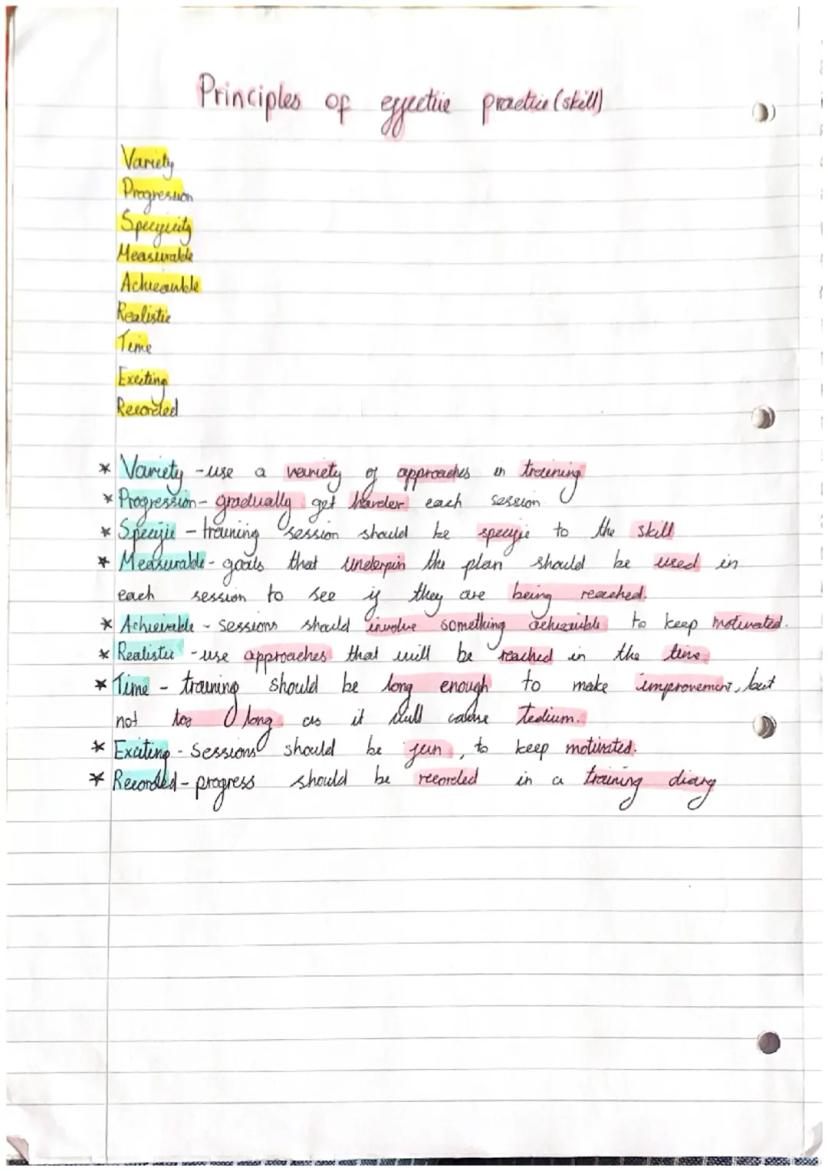 Principles of effective practice (skill)
Variety
Progression
Specificity
Measurable
Achievable
Realistic
Time
Exciting
Recorded
* Variety - use a variety of approaches in training
* Progression - gradually get harder each session
* Specific - training session should be specific to the skill
* Measurable - goals that underpin the plan should be used in
each session to see if they are being reached.
* Achievable - sessions should involve something achievable to keep motivated.
* Realistic - use approaches that will be reached in the time
* Time - training should be long enough to make improvement, but
not too long as it will cause Tedium.
* Exciting - Sessions should be fun, to keep motivated.
* Recorded - progress should be recorded in a training diary